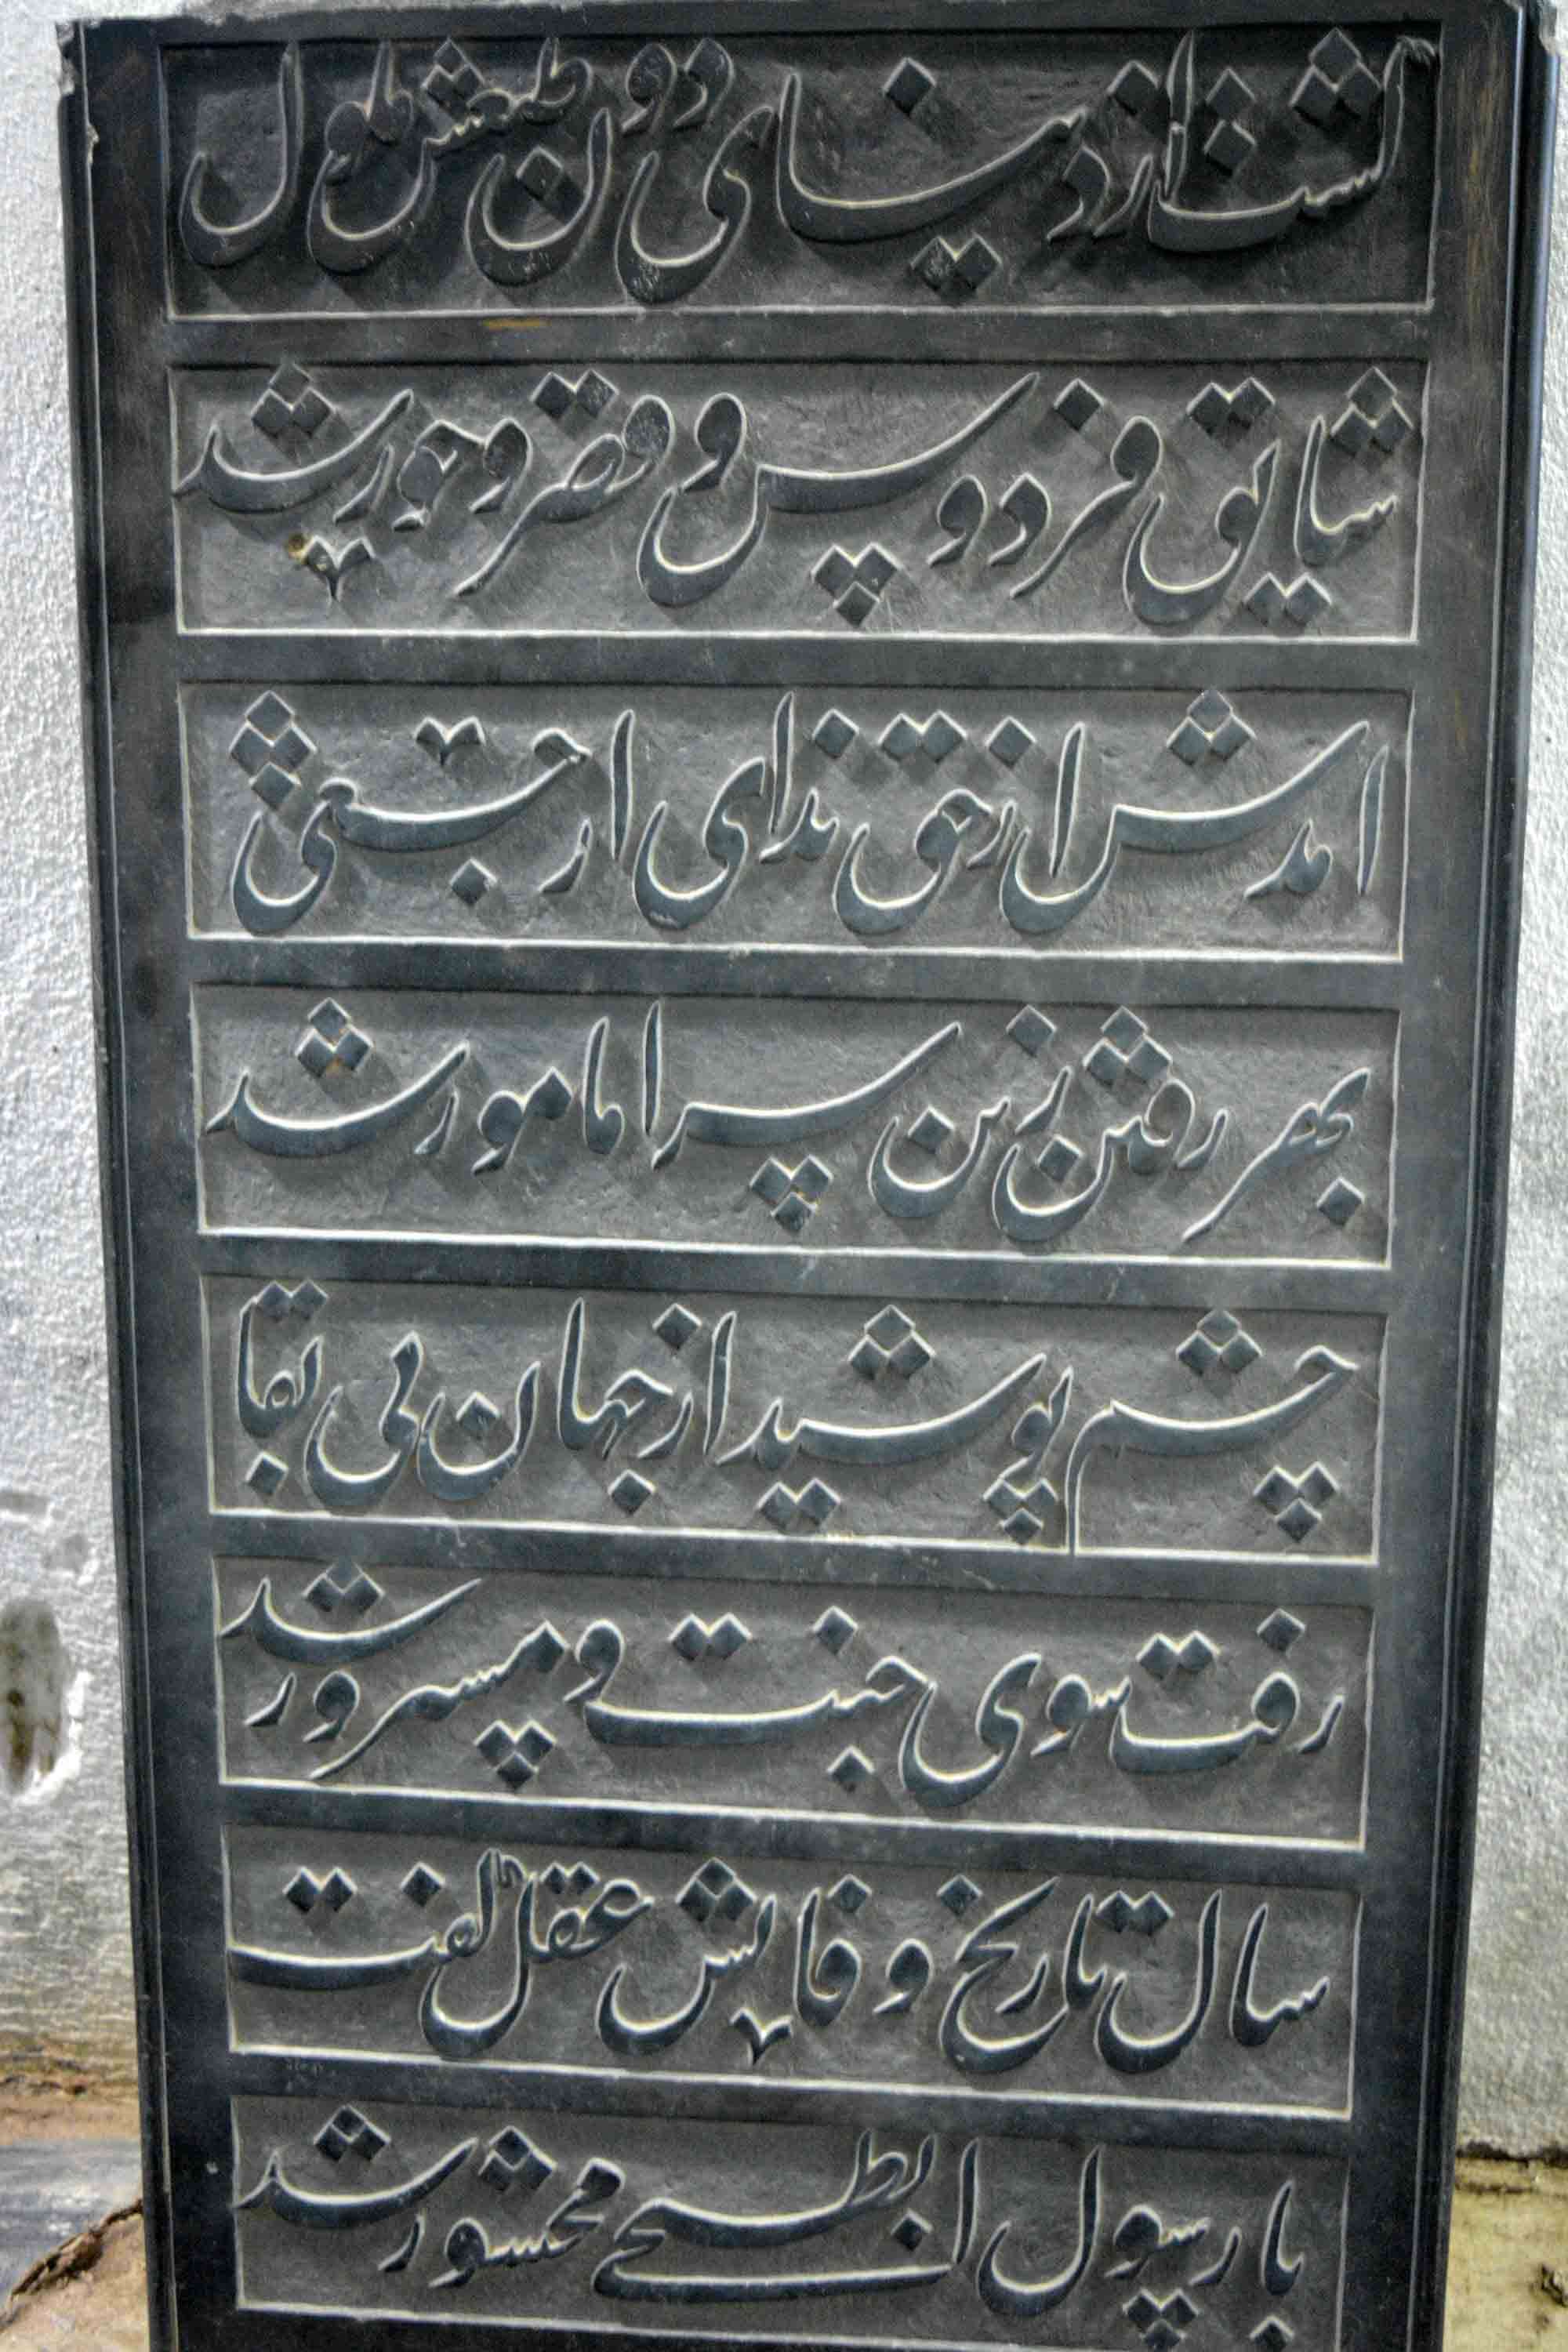 گشت از دنیای دون طبعش ملول
شایق فردوس و قصر و حور شد
امدش از حق ندای ارجعی
بهر رفتن زین سرا مامور شد
چشم پوشید از جهان بی بقا
رفت سوی جنت و مسرور شد
سال تاریخ وفایش عقل گفت
با رسول ابطحی محشور شد